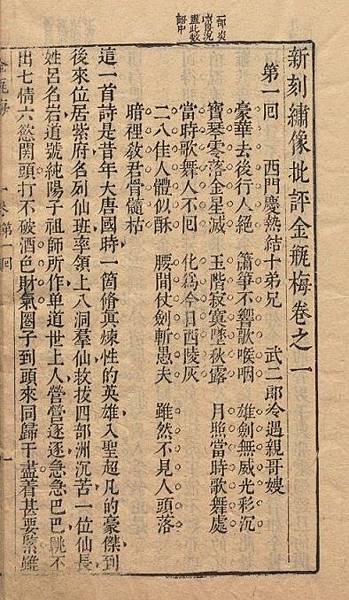 一部炎
凉景况
盡此數
語中
新刻繡像批評金瓶梅卷之一
第一回 西門慶熱結十弟兄 武二郎冷遇親哥嫂
豪華去後行人絕 簫箏不響歌喉咽 雄劍無威光彩沉
寶琴零落金星滅 玉階寂寞墜秋露 月照當時歌舞處
當時歌舞人不回 化爲今日西陵灰
二八佳人體似酥 腰間仗劍斬愚夫 雖然不見人頭落
暗裡教君骨髓枯
這一首詩是昔年大唐國時一箇脩真煉性的英雄入聖超凡的豪傑到
後來位居紫府名列仙班率領上八洞羣仙救拔四部洲沉苦一位仙長
姓呂名岩道號純陽子祖師所作单道世上人營營逐逐急急巴巴跳不
出七情六慾関頭打不破酒色財氣圈子到頭來同歸于盡着甚要緊雖
金瓶梅 一卷第一回 一